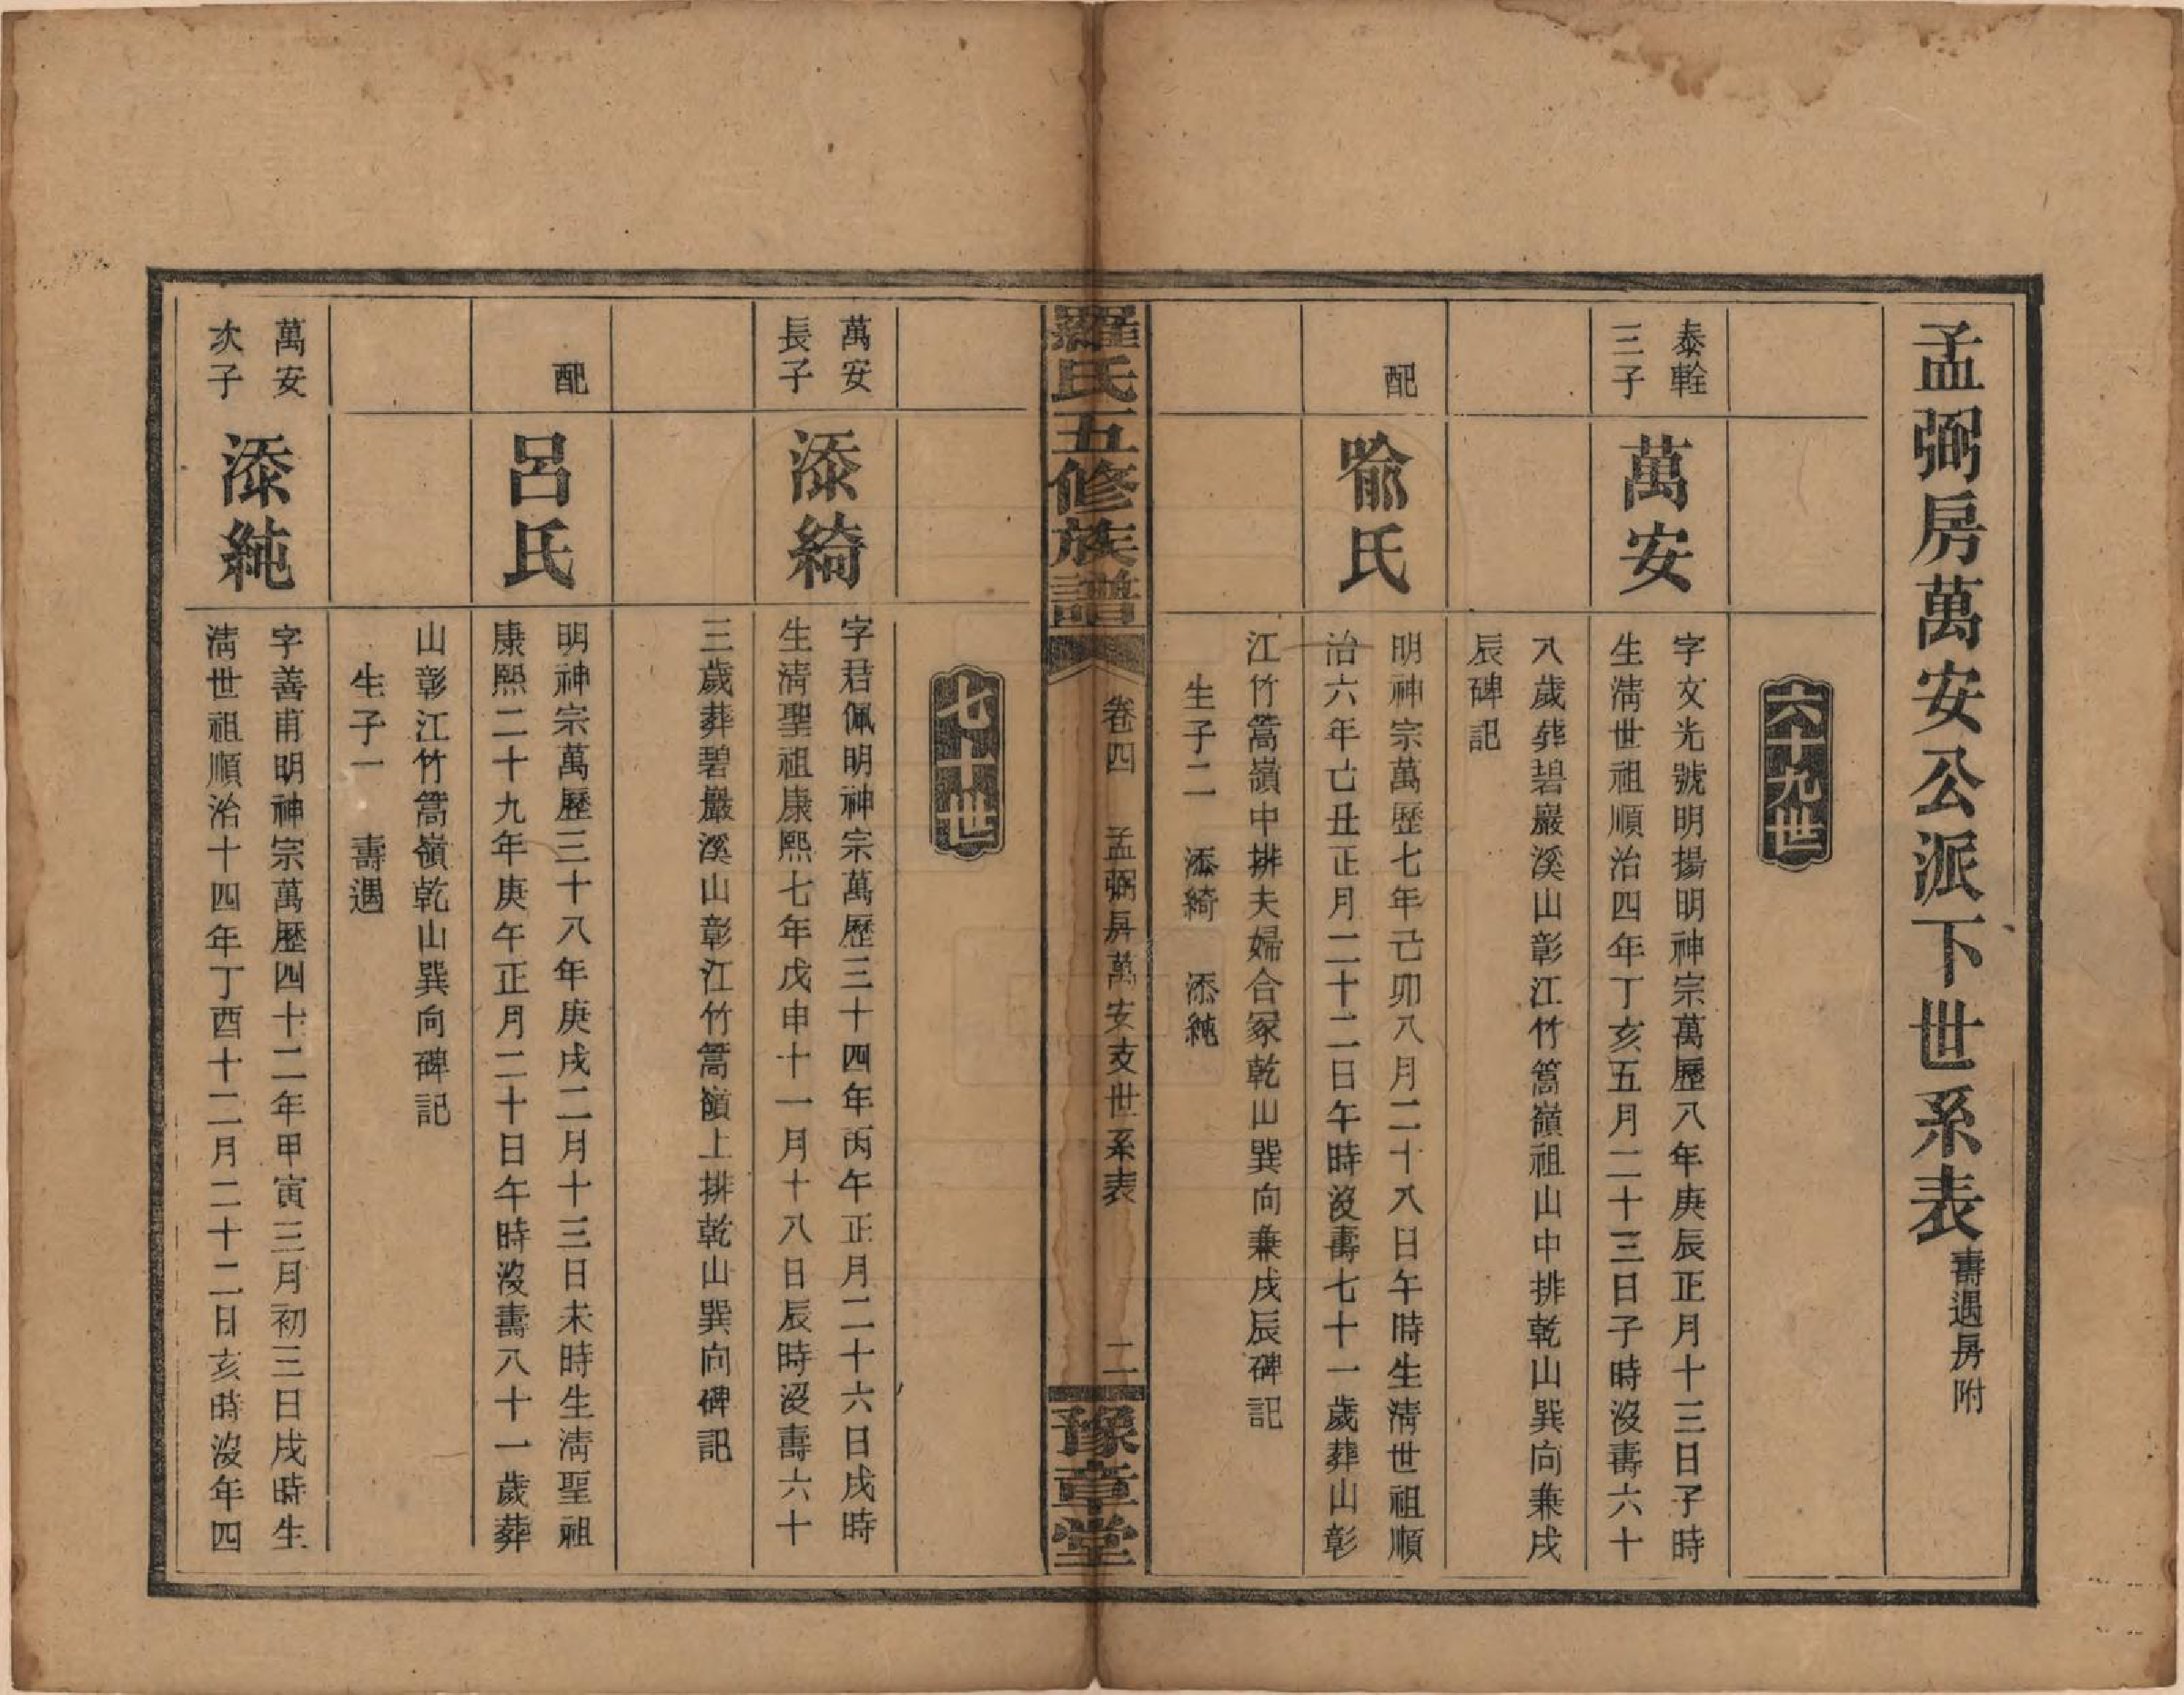 孟弼房萬安公派下世系表壽遇房附
六十九世
泰輇
三子
萬安
字文光號明揚明神宗萬歷八年庚辰正月十三日子時
生淸世祖順治四年丁亥五月二十三日子時沒壽六十
八歲葬碧巖溪山彰江竹篙嶺祖山中排乾山巽向兼戌
辰碑記
配
喩氏
明神宗萬歷七年己卯八月二十八日午時生淸世祖順
治六年己丑正月二十二日午時沒壽七十一歲葬山彰
江竹篙嶺中排夫婦合冢乾山巽向兼戌辰碑記
生子二 添綺 添純
羅氏五修族譜
卷四 孟弼房萬安支世系表
二
豫章堂
七十世
萬安
長子
添綺
字君佩明神宗萬歷三十四年丙午正月二十六日戌時
生淸聖祖康熙七年戊申十一月十八日辰時沒壽六十
三歲葬碧巖溪山彰江竹篙嶺上排乾山巽向碑記
配
呂氏
明神宗萬歷三十八年庚戌二月十三日未時生淸聖祖
康熙二十九年庚午正月二十日午時沒壽八十一歲葬
山彰江竹篙嶺乾山巽向碑記
生子一 壽遇
萬安
次子
添純
字善甫明神宗萬歷四十二年甲寅三月初三日戌時生
淸世祖順治十四年丁酉十二月二十二日亥時沒年四